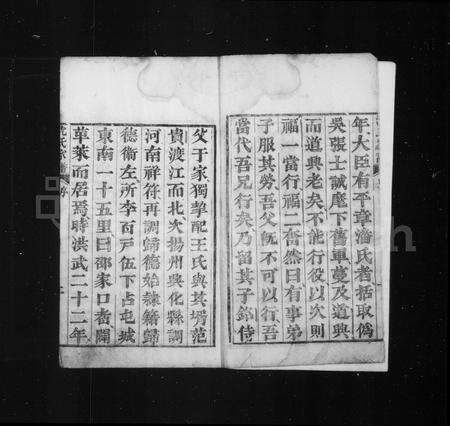 年大臣有平章潘氏者括取偽
吳張士誠麾下舊軍蔓及道興
而道興老矣不能行役以次則
福一當行福二奮然曰有事弟
子服其勞吾父既不可以行吾
當代吾兄行矣乃留其子錦侍
父于家獨挈配王氏與其壻范
貴渡江而北次揚州興化縣調
河南祥符再調歸德始隸籍歸
德衛左所李百戶伍下占屯城
東南一十五里曰邵家口畨闢
草萊而居焉時洪武二十二年
沈氏家